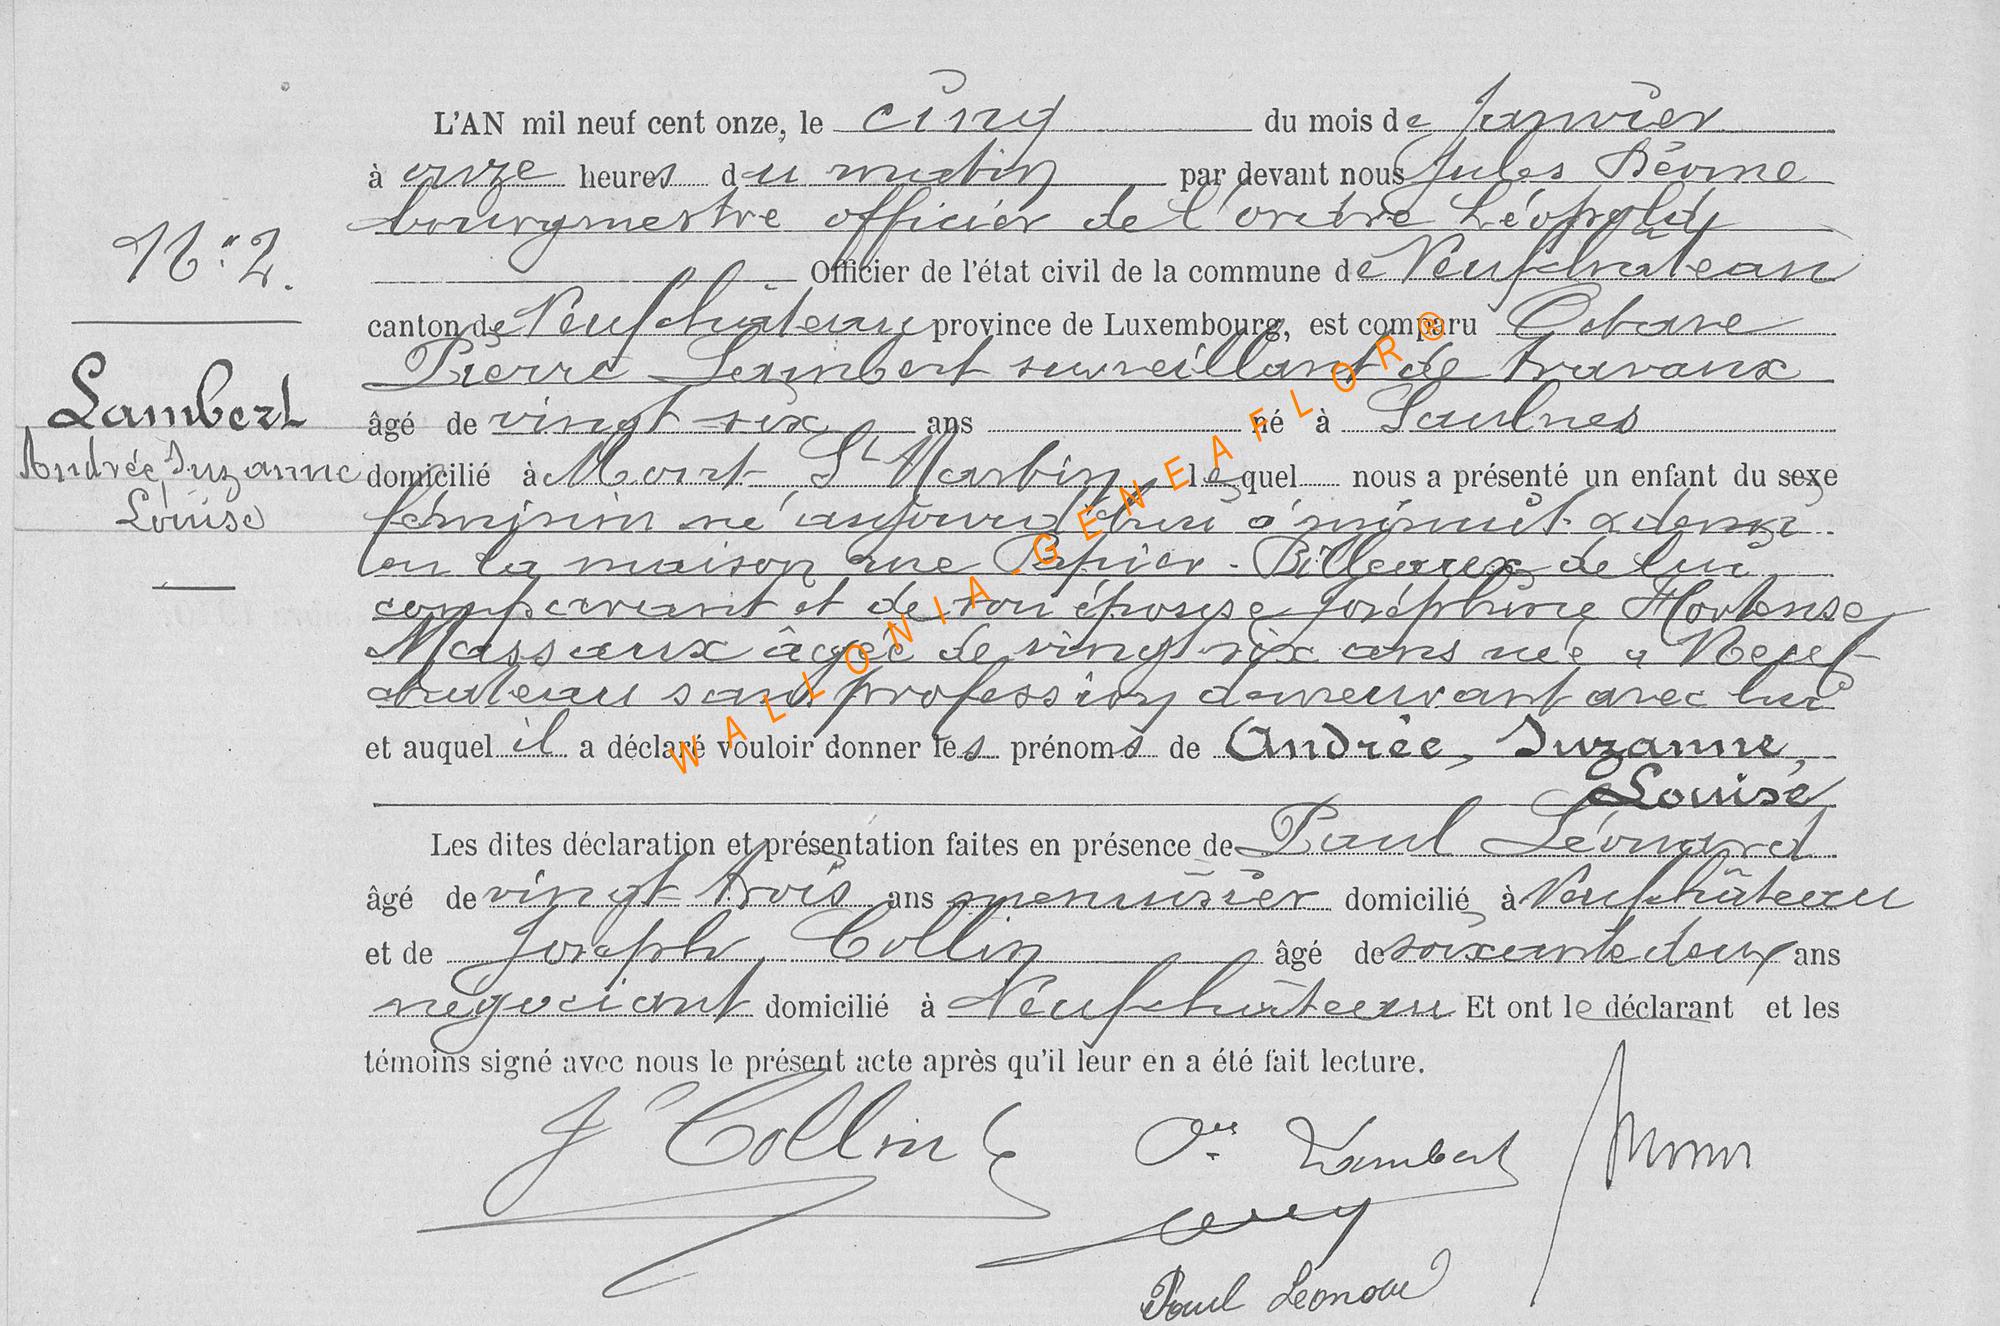 L'AN mil neuf cent onze, le cinq du mois de Janvier
à onze heures du matin par devant nous Jules
bourgmestre officier de l'ordre Léopold
Officier de l'état civil de la commune de Neufchâteau
canton de Neufchâteau province de Luxembourg, est comparu Octave
Pierre Lambert surveillant de travaux
âgé de vingt six ans né à Saulnes
domicilié à Mont St Martin lequel nous a présenté un enfant du sexe
féminin né aujourd'hui à minuit & demi
en la maison rue de lui
comparant et de son épouse Joséphine Hortense
Massaux âgée de vingt six ans née à Neuf-
château sans profession demeurant avec lui
et auquel il a déclaré vouloir donner les prénoms de Andrée, Suzanne,
Louise
Les dites déclaration et présentation faites en présence de Paul Léonard
âgé de vingt trois ans menuisier domicilié à Neufchâteau
et de Joseph Collin âgé de soixante deux ans
négociant domicilié à Neufchâteau Et ont le déclarant et les
témoins signé avec nous le présent acte après qu'il leur en a été fait lecture.
N° 2.
Lambert
Andrée Suzanne
Louise
J Collin
Lambert
Paul Léonard
WALLONIA-GENEAFLOR®